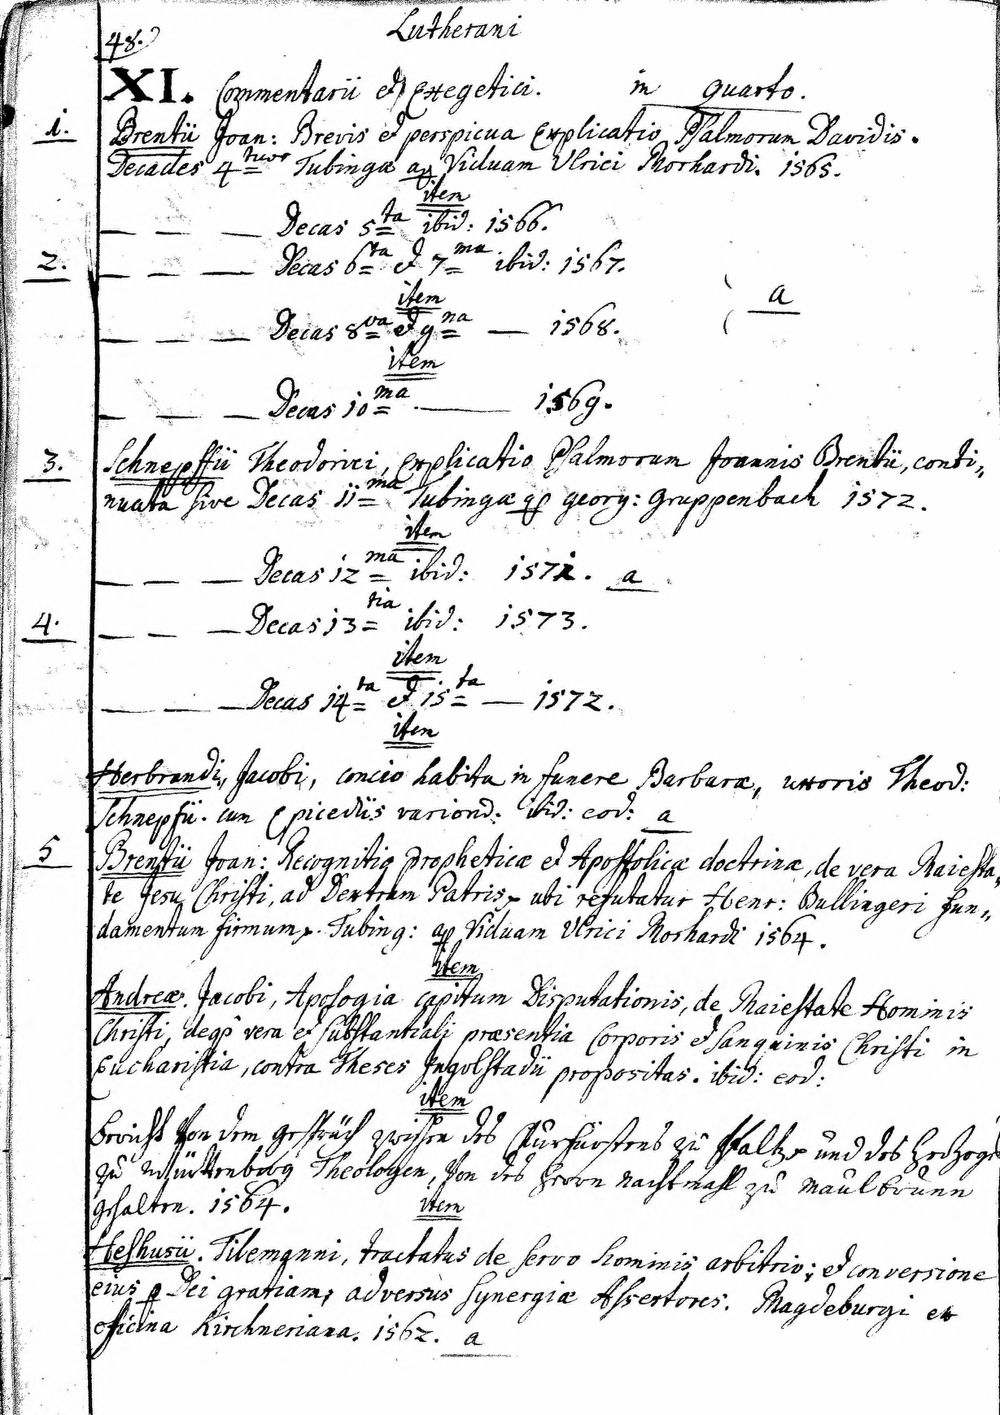 48.
Lutherani
XI. Commentarii et Exegetici. in quarto.
1. Brentii Joan: Brevis et perspicua Explicatio Psalmorum Davidis.
Decades 4tuor Tubingæ ap Viduam Ulrici Morhardi. 1565.
item
— — — Decas 5ta ibid: 1566.
2. — — — Decas 6ta et 7ma ibid: 1567.
item
a
— — — Decas 8va et 9na — 1568.
item
— — — Decas 10ma — 1569.
3. Schnepffii Theodorici, Explicatio Psalmorum Joannis Brentii, conti„
nuata sive Decas 11ma Tubingæ ap georg: Gruppenbach 1572.
item
— — — Decas 12ma ibid: 1572. a
4. — — — Decas 13tia ibid: 1573.
item
— — — Decas 14ta et 15ta — 1572.
item
Herbrandi, Jacobi, concio habita in funere Barbaræ, uxoris Theod:
Schnepfii. cum Epicediis variorum. ibid: eod: a
5 Brentii Joan: Recognitio propheticæ et Apostolicæ doctrinæ, de vera Maiesta„
te Jesu Christi, ad Dextram Patris, ubi refutatur Henr: Bullingeri fun„
damentum firmum. Tubing: ap Viduam Ulrici Morhardi 1564.
item
Andreæ. Jacobi, Apologia capitum Disputationis, de Maiestate Hominis
Christi, deqz vera et substantiali præsentia Corporis et sanguinis Christi in
Eucharistia, contra Theses Ingolstadii propositas. ibid: eod:
item
Bericht Von dem gespräch zwischen des Churfürstens zu Pfaltz und des Hertzogs
zu Würtenberg Theologen, Von des Herrn nachtmahl zu Maulbrunn
gehalten. 1564.
item
Heshusii. Tilemanni, tractatus de servo hominis arbitrio; et conversione
eius p Dei gratiam, adversus synergiæ Assertores. Magdeburgi ex
officina Kirchneriana. 1562. a